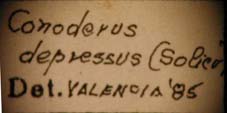 Conoderus
depressus (Solier)
Det. VALENCIA '85